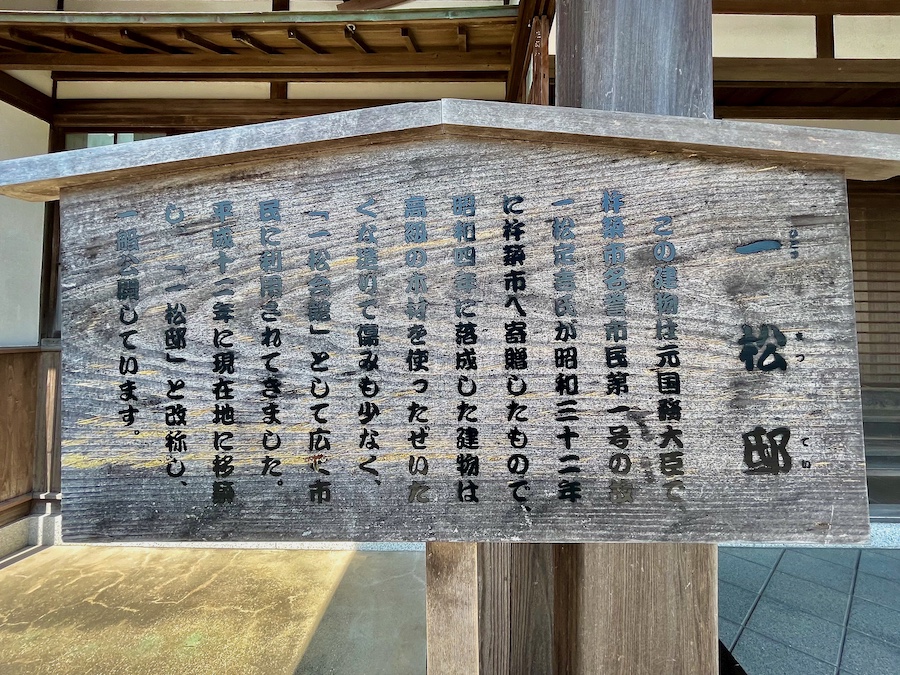 一松邸
ひとつ まつ てい
この建物は元国務大臣で
杵築市名誉市民第一号の故
一松定吉氏が昭和三十二年
に杵築市へ寄贈したもので、
昭和四年に落成した建物は
高級の木材を使ったぜいた
くな造りで傷みも少なく、
「一松会館」として広く市
民に利用されてきました。
平成十二年に現在地に移築
し、「一松邸」と改称し、
一般公開しています。